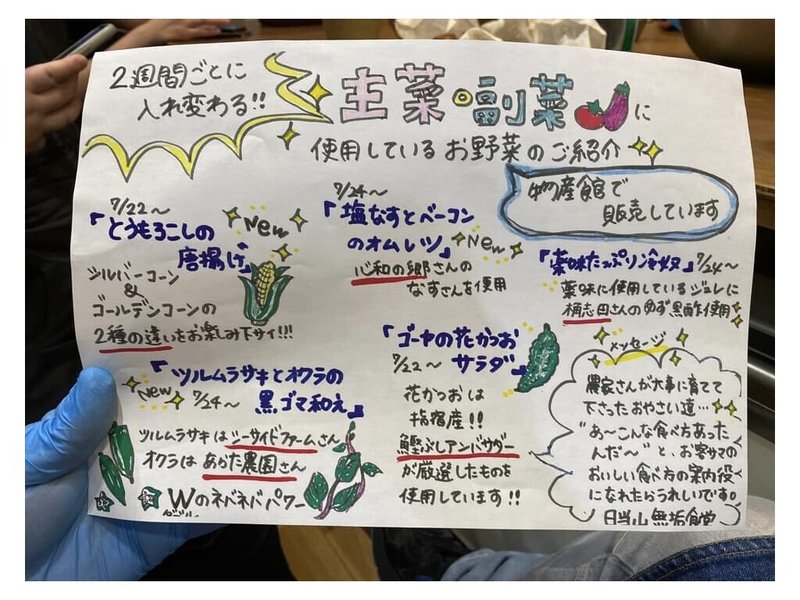 2週間ごとに
入れ変わる!!
主菜・副菜に
使用しているお野菜のご紹介
物産館で
販売しています
7/22〜
New
「とうもろこしの
唐揚げ」
シルバーコーン
&
ゴールデンコーンの
2種の違いをお楽しみ下サイ!!!
7/24〜
「塩なすとベーコン
のオムレツ」
New
心和の郷さんの
なすさんを使用
「薬味たっぷり冷奴」7/24〜
薬味に使用しているジュレに
桷志田さんのゆず黒酢使用
「ツルムラサキとオクラの
黒ゴマ和え」
New
7/24〜
ツルムラサキはシーサイドファームさん
オクラはあらた農園さん
Wのネバネバパワー
ダブル
「ゴーヤの花かつお
サラダ」
7/22〜
花かつおは
指宿産!!
鰹ぶしアンバサダー
が厳選したものを
使用しています!!
メッセージ
農家さんが大事に育てて
下さったおやさい達…
"あ〜こんな食べ方あった
んだ〜"と、お客サマの
おいしい食べ方の案内役
になれたらうれしいです。
日当山無垢食堂